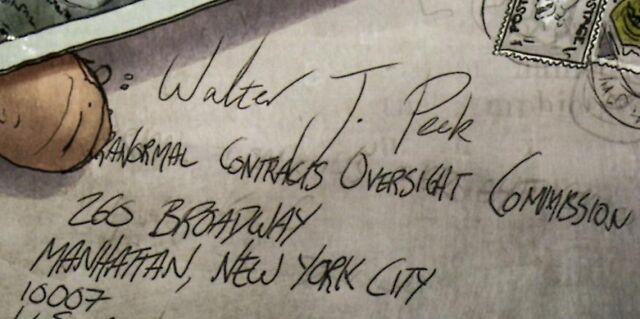 Walter J. Peck
RANORMAL CONTRACTS OVERSIGHT COMMISSION
260 BROADWAY
MANHATTAN, NEW YORK CITY
10007
POST